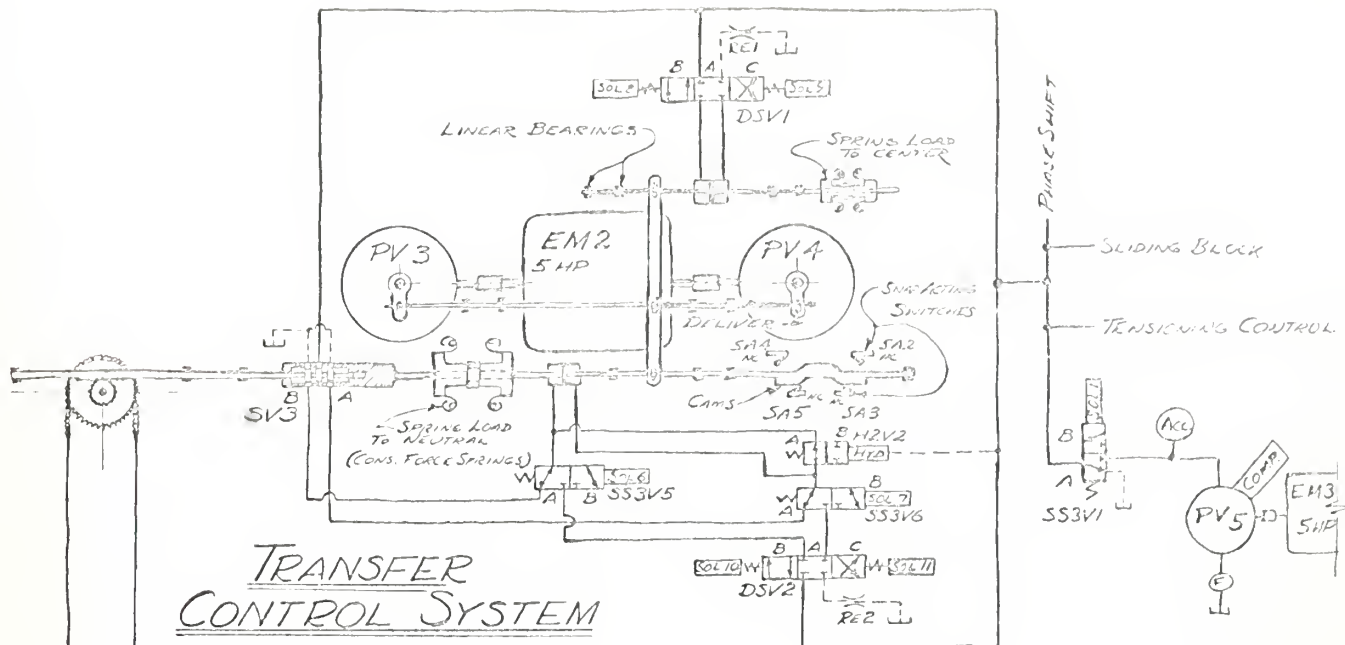 RE1
B A C
SOL 5
DSV1
LINEAR BEARINGS
SPRING LOAD
TO CENTER
PHASE SHIFT
PV3
EM2
5 HP
PV4
SLIDING BLOCK
SNAP ACTING
SWITCHES
DELIVER
TENSIONING CONTROL
SA4
NC
SA2
NC
B A
SV3
CAMS
SA5
NC
SA3
SPRING LOAD
TO NEUTRAL
(CONS. FORCE SPRINGS)
A B H2V2
HYD
SOL 6
A B SS3V5
B
A SOL 7
SS3V6
B
A
SS3V1
ACC
COMP.
PV5
EM3
5HP
F
TRANSFER
CONTROL SYSTEM
SOL 10
B A C
SOL 11
DSV2
RE2